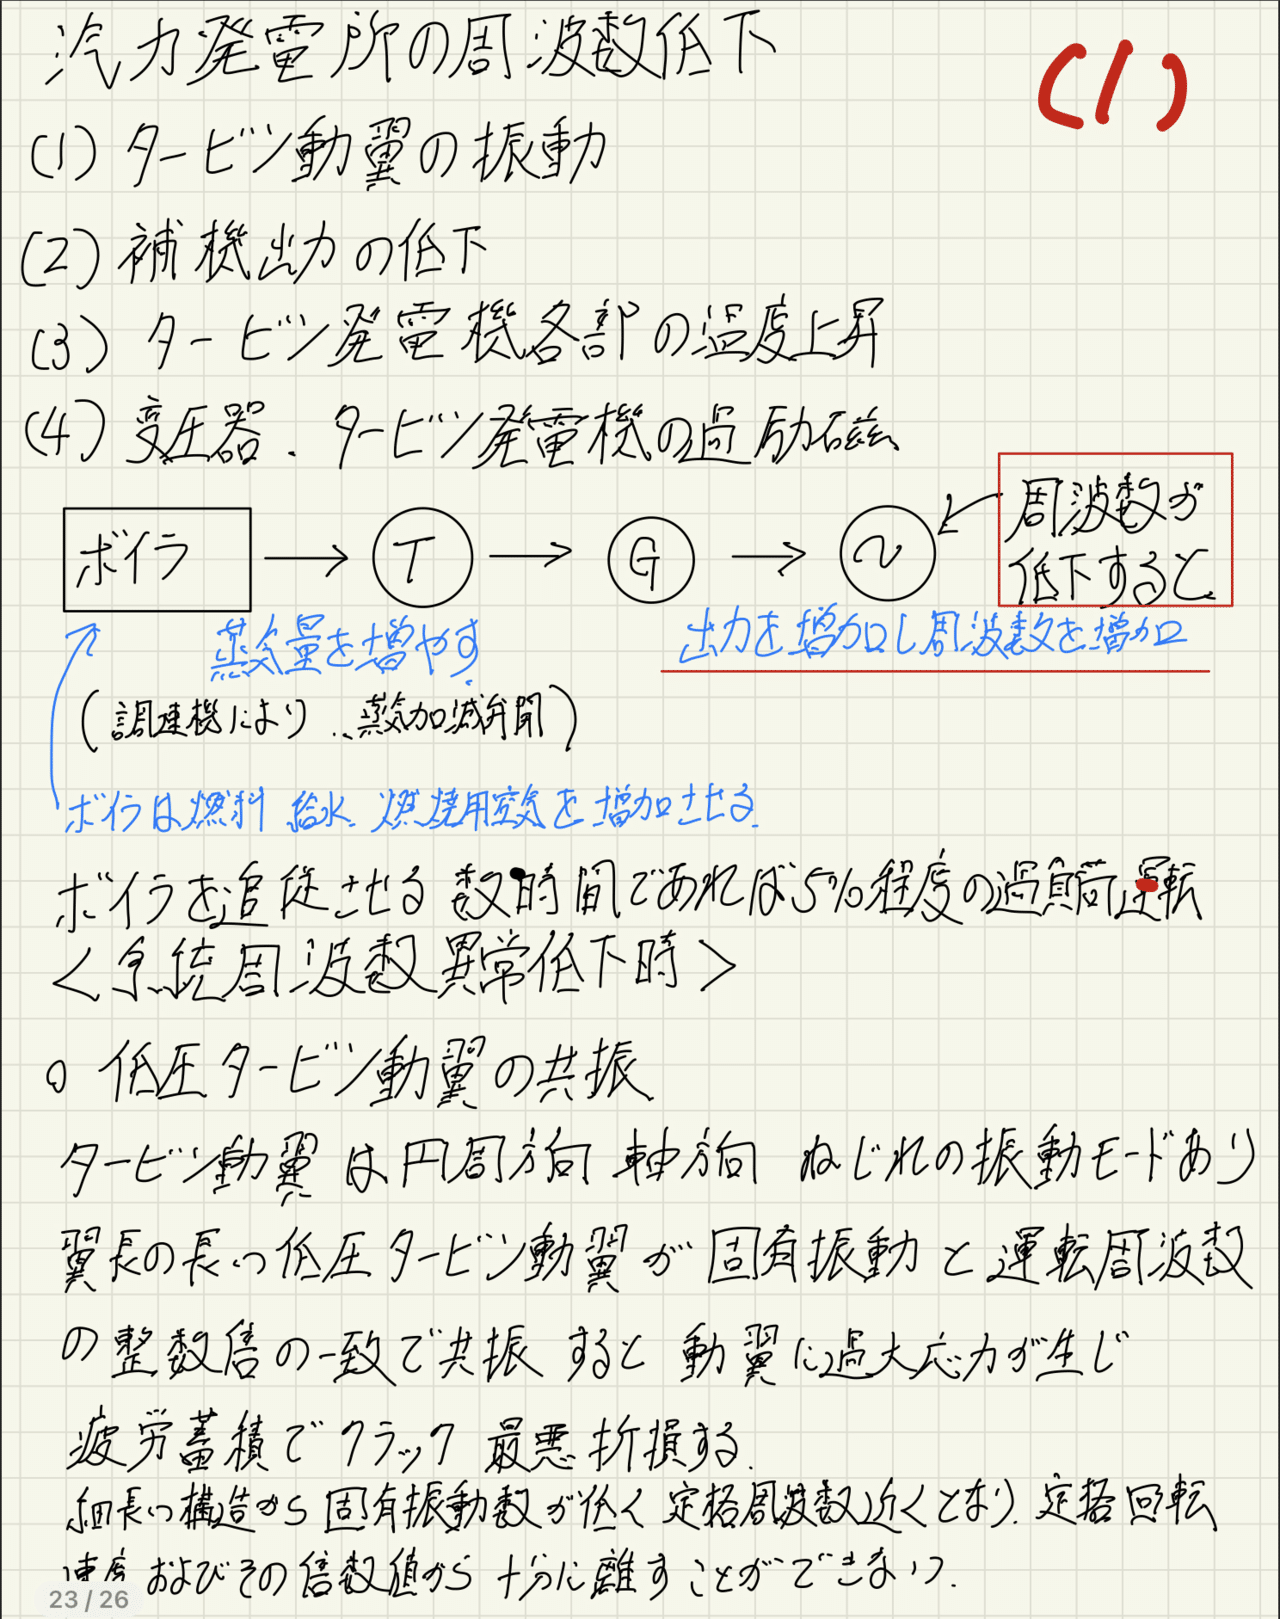 汽力発電所の周波数低下
(1)
(1) タービン動翼の振動
(2) 補機出力の低下
(3) タービン発電機各部の温度上昇
(4) 変圧器、タービン発電機の過励磁
周波数が
低下すると
ボイラ → T → G → ~
蒸気量を増やす
出力を増加し周波数を増加
(調速機により、蒸気加減弁開)
ボイラは燃料 給水 燃焼用空気を増加させる
ボイラを追従させる 数時間であれば5%程度の過負荷運転
<系統周波数異常低下時>
○ 低圧タービン動翼の共振
タービン動翼は円周方向 軸方向 ねじれの振動モードあり
翼長の長い低圧タービン動翼が固有振動と運転周波数
の整数倍の一致で共振すると動翼に過大応力が生じ
疲労蓄積でクラック 最悪折損する.
細長い構造から固有振動数が低く定格周波数近くとなり、定格回転
速度およびその倍数値から十分に離すことができない.
23 / 26